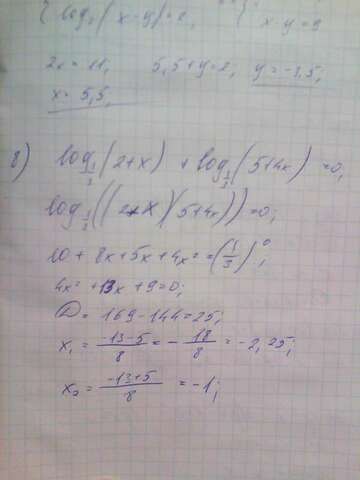 log₃(x-y)=2,
x-y=9
2x = 11; 5,5+y=2; y=-3,5;
x= 5,5,
8) log_{1/3}(2+x) + log_{1/3}(5+4x) =0;
log_{1/3}((2+x)(5+4x))=0;
10 + 8x+5x+4x² = (1/3)⁰;
4x² +13x +9=0;
D = 169-144=25;
x₁ = (-13-5)/8 = -18/8 = -2,25;
x₂ = (-13+5)/8 = -1;